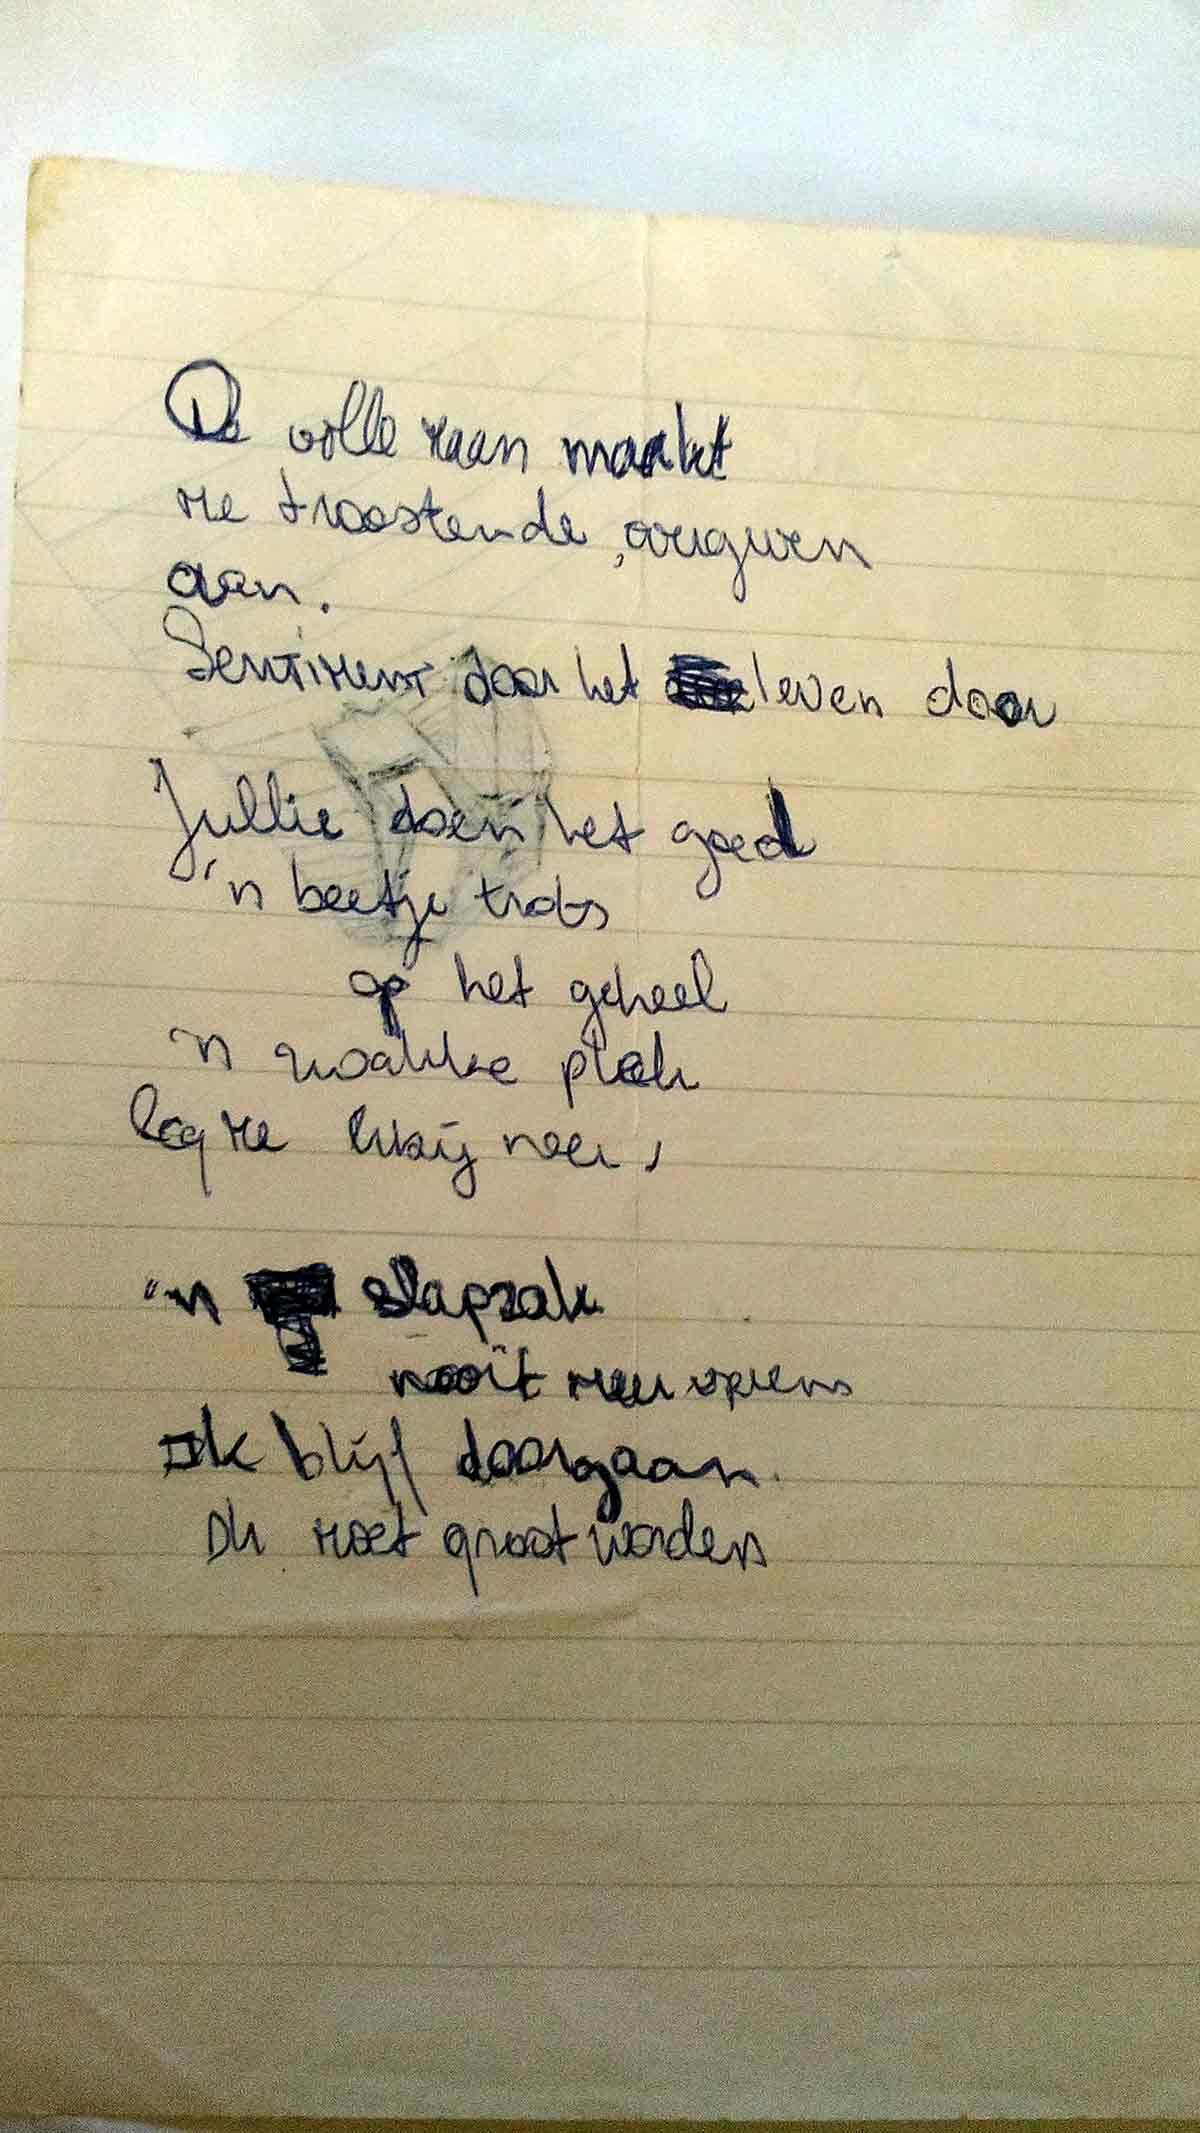 De volle maan maakt
me troostende,
aan.
Sentiment door het leven door
Jullie doen het goed
'n beetje trots
op het geheel
'n zwakke plek
leg me hierbij neer,
'n slapzak
nooit meer
Ik blijf doorgaan.
Ik moet groot worden